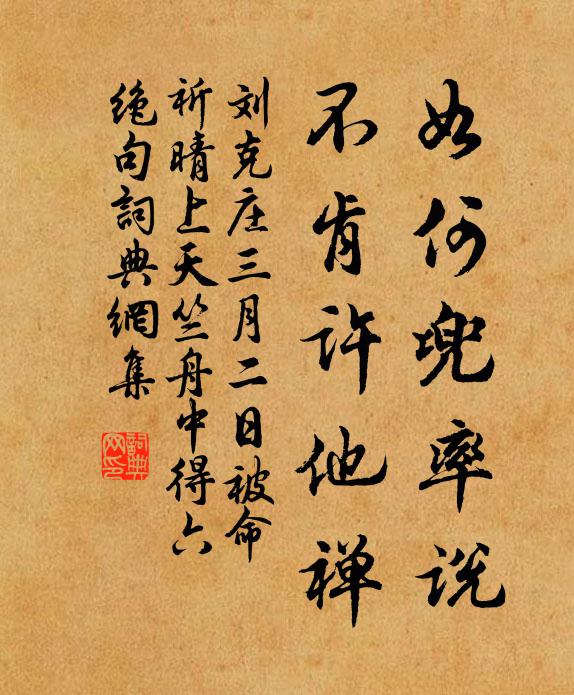 如何兜率说
不肯许他禅
刘克庄三月二日被命
祈晴上天竺舟中得六
绝句詞典網集
詞典
网印